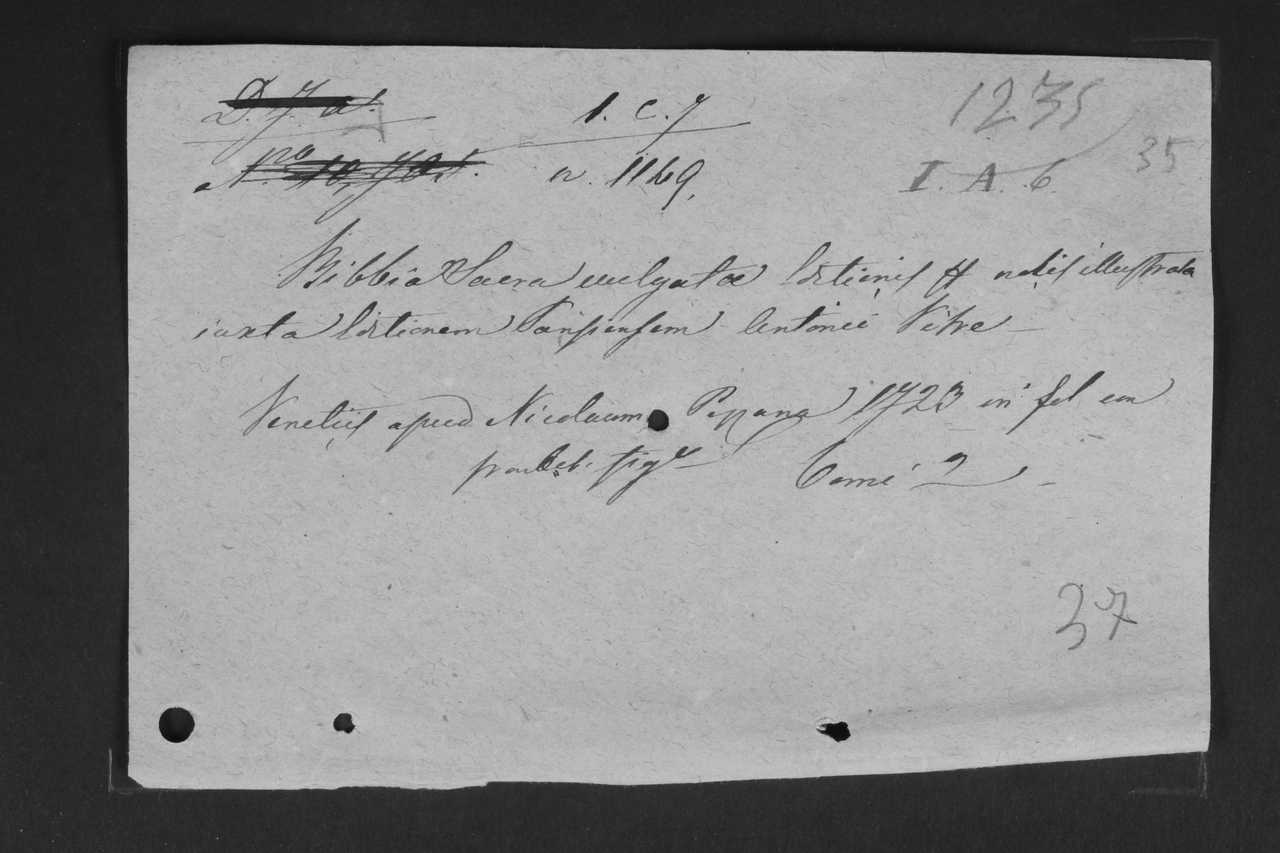 1. C. 7
1235
n. 1149.
35
I. A. 6.
Bibbia Sacra vulgatæ Editionis notis illustrata
iuxta Editionem Parisiensem Antonii Vitre
Venetiis apud Nicolaum Pezzana 1723 in fol con
figre Tomi 2
37